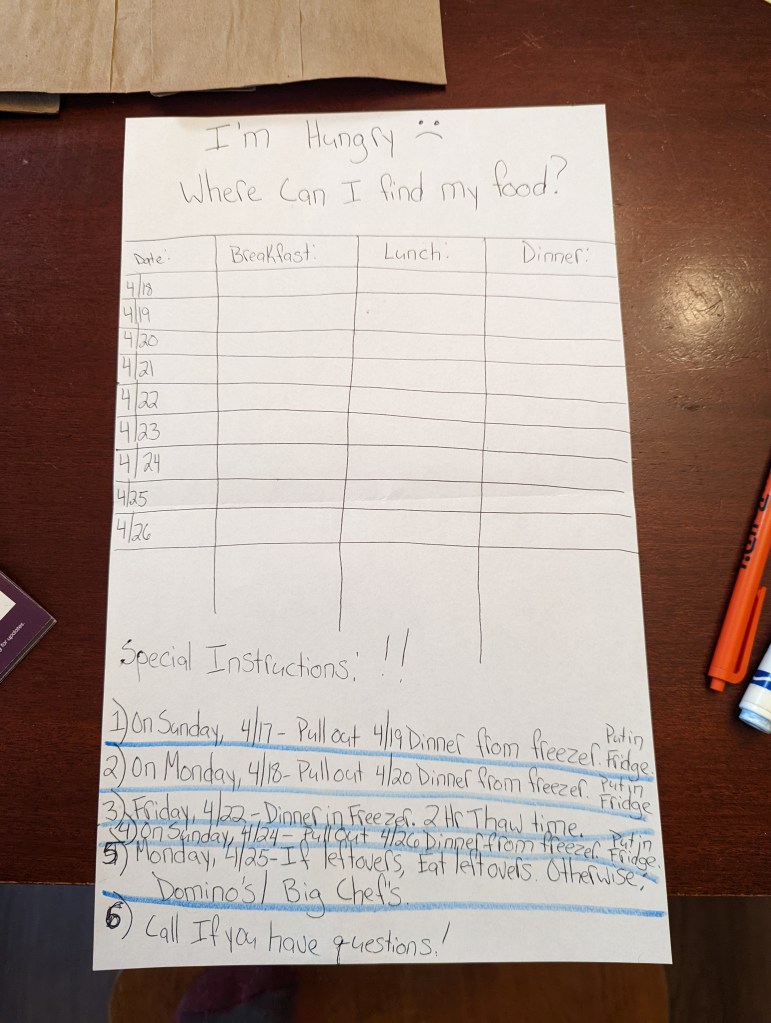 I'm Hungry :(
Where Can I find my food?
Date: Breakfast: Lunch: Dinner:
4/18
4/19
4/20
4/21
4/22
4/23
4/24
4/25
4/26
Special Instructions: !!
1) On Sunday, 4/17- Pull out 4/19 Dinner from freezer. Put in Fridge.
2) On Monday, 4/18- Pull out 4/20 Dinner from freezer. Put in Fridge
3) Friday, 4/22 - Dinner in Freezer. 2 Hr Thaw time.
4) On Sunday, 4/24- Pull out 4/26 Dinner from freezer. Put in Fridge.
5) Monday, 4/25- If leftovers, Eat leftovers. Otherwise;
Domino's / Big Chef's.
6) Call If you have questions!
for updates.